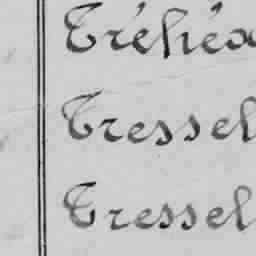 Tréhéa
Tressel
Tressel